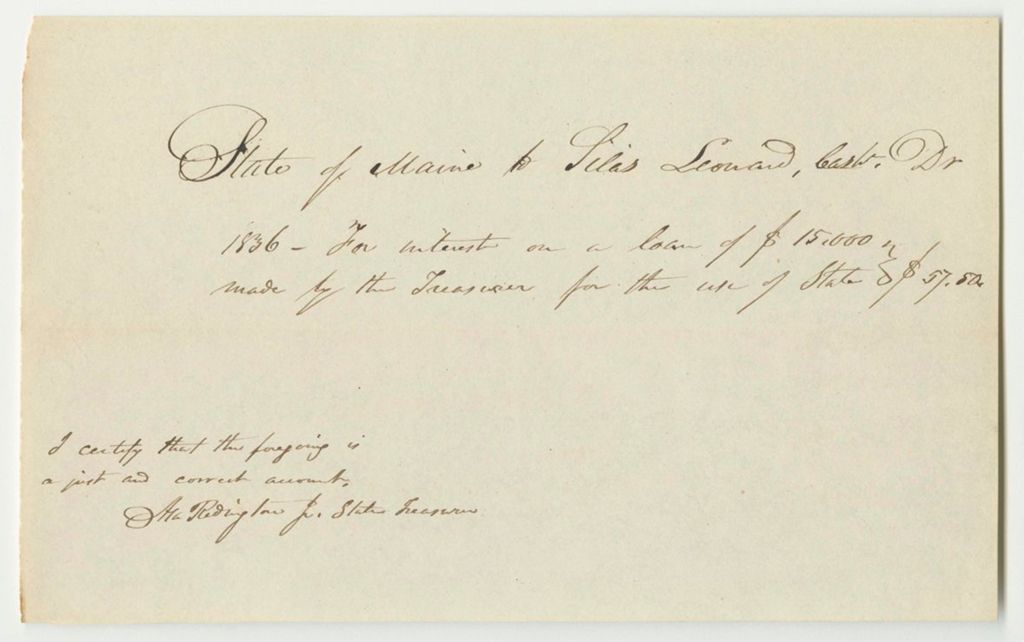 State of Maine to Silas Leonard, Cashr. Dr
1836 - For interest on a loan of $15.000
made by the Treasurer for the use of State } $57.50
I certify that the foregoing is
a just and correct account.
Asa Redington Jr. State Treasurer